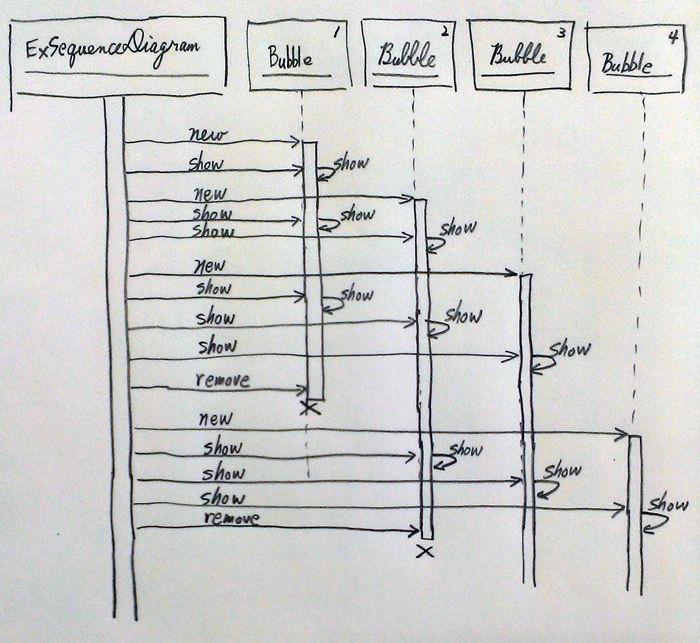 ExSequenceDiagram
Bubble 1
Bubble 2
Bubble 3
Bubble 4
new
show show
new
show show
show show
new
show show
show show
show show
remove
X
new
show show
show show
show show
remove
X